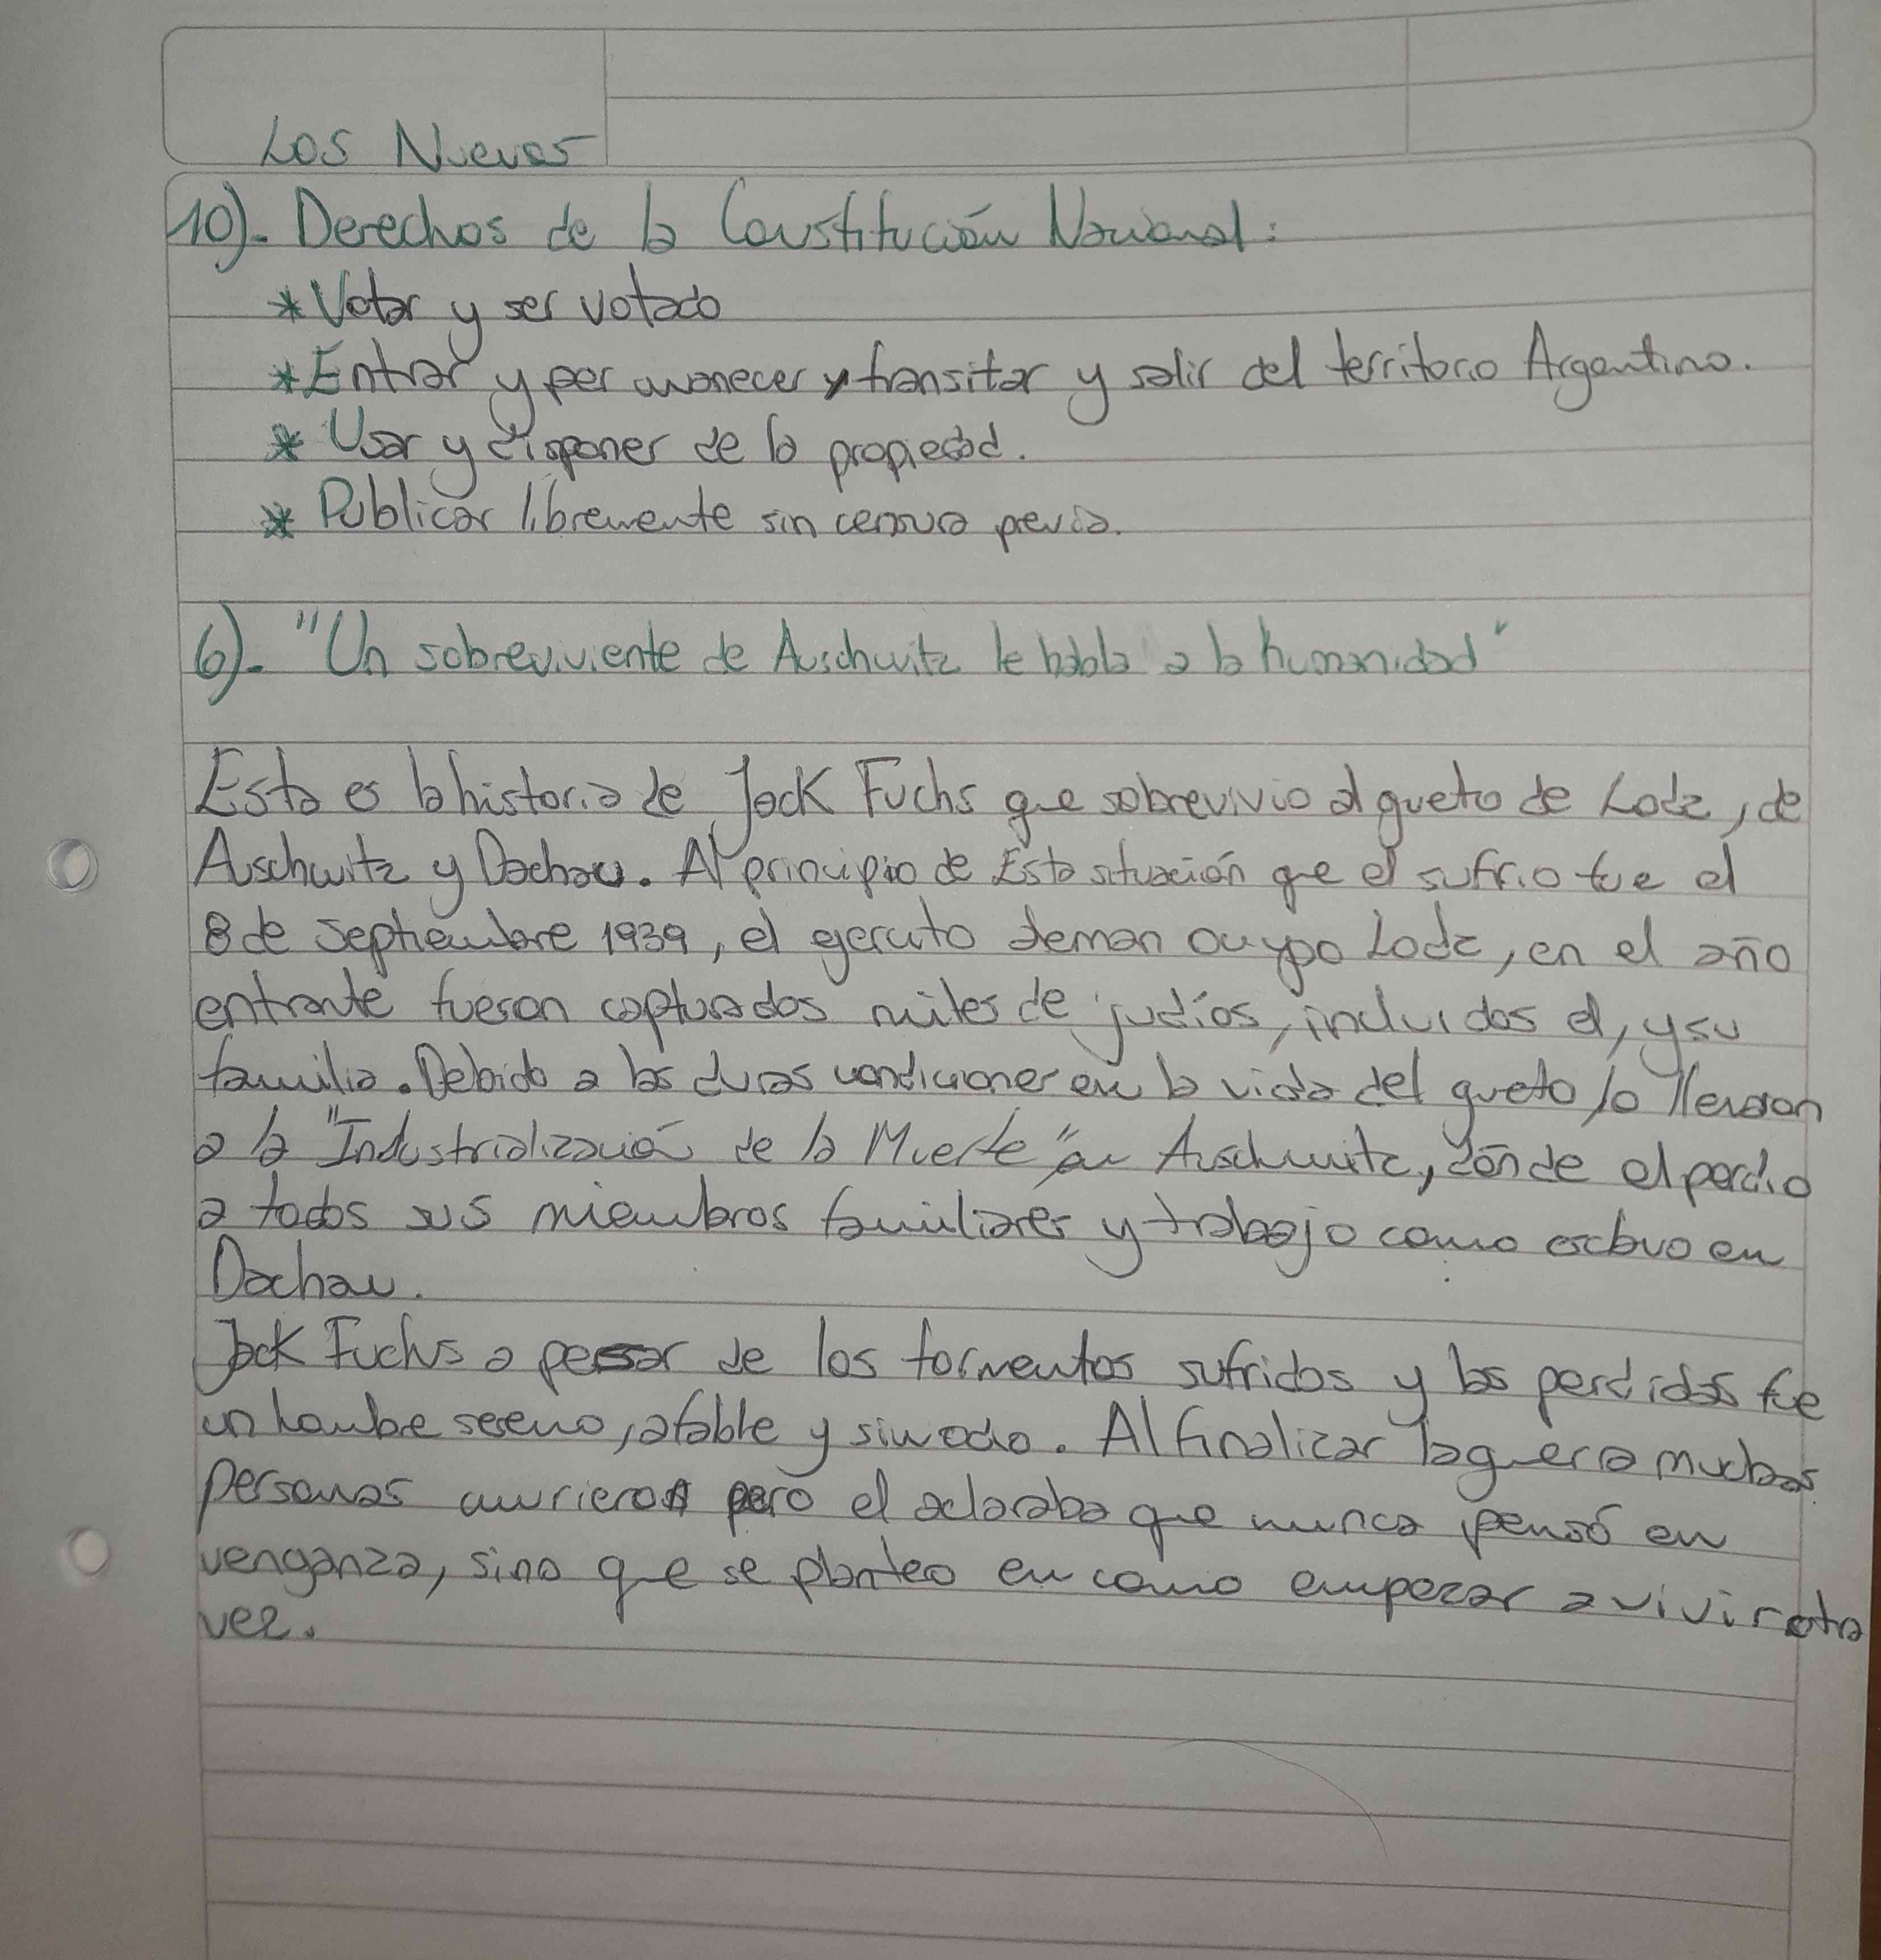 Los Nuevas
10). Derechos de la Constitución Nacional:
* Votar y ser votado
* Entrar y permanecer y transitar y salir del territorio Argentino.
* Usar y disponer de la propiedad.
* Publicar libremente sin censura previa.
6). "Un sobreviviente de Auschwitz le habla a la humanidad"
Esta es la historia de Jack Fuchs que sobrevivio al gueto de Lodz, de
Auschwitz y Dachau. Al principio de Esta situación que el sufrio fue el
8 de septiembre 1939, el ejercito aleman ocupo Lodz, en el año
entrante fueron capturados miles de judíos, incluidos el, y su
familia. Debido a las duras condiciones en la vida del gueto lo llevaron
a la "Industrialización de la Muerte" en Auschwitz, dónde el perdio
a todos sus miembros familiares y trabajo como esclavo en
Dachau.
Jack Fuchs a pesar de los tormentos sufridos y las perdidas fue
un hombre sereno, afable y sin odio. Al finalizar la guerra muchas
personas murieron pero el aclaraba que nunca pensó en
venganza, sino que se planteo en como empezar a vivir otra
vez.